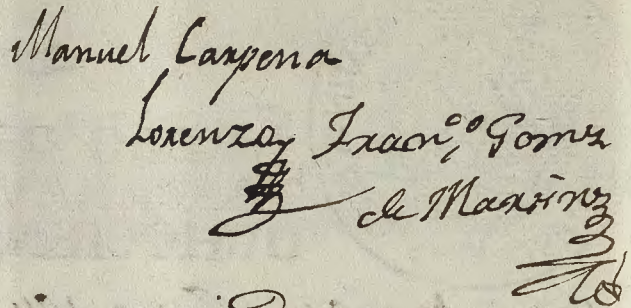 Manuel Carpena
Lorenzo Fran.co Gomz
de Martinz